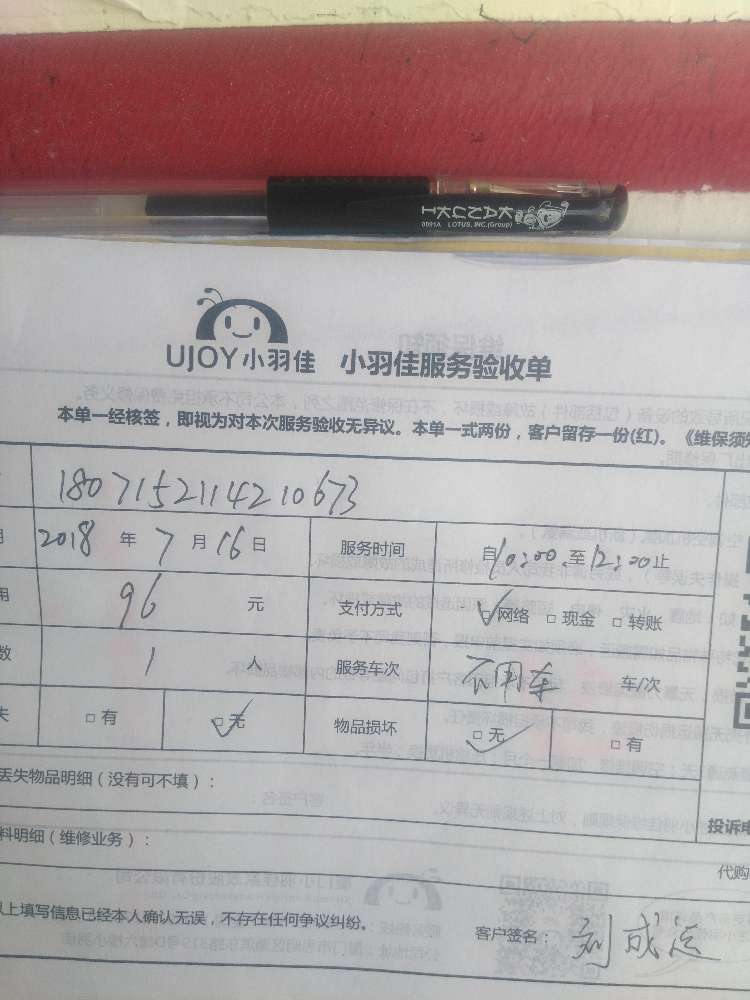 KANUKI
0091A LOTUS, INC.(Group)
UJOY小羽佳 小羽佳服务验收单
本单一经核签，即视为对本次服务验收无异议。本单一式两份，客户留存一份(红)。《维保须知
180715211421067​3
2018 年 7 月 16 日 服务时间 自10:00 至12:00止
用 96 元 支付方式 ☑网络 □现金 □转账
数 1 人 服务车次 不用车 车/次
失 □有 ☑无 物品损坏 ☑无 □有
丢失物品明细（没有可不填）：
投诉电
料明细（维修业务）：
代购
以上填写信息已经本人确认无误，不存在任何争议纠纷。
客户签名：刘成